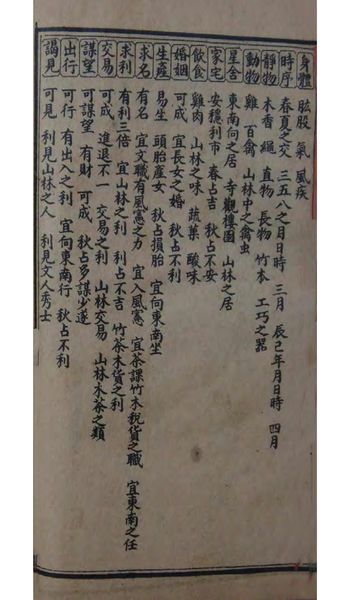 身體 肱股 氣 風疾
時序 春夏之交 三五八之月日時 三月 辰巳年月日時 四月
靜物 木香 繩 直物 長物 竹木 工巧之器
動物 雞 百禽 山林中之禽虫
星舍 東南向之居 寺觀樓園 山林之居
家宅 安穩利市 春占吉 秋占不安
飲食 雞肉 山林之味 蔬菓 酸味
婚姻 可成 宜長女之婚 秋占不利
生產 易生 頭胎產女 秋占損胎 宜向東南坐
求名 有名 宜文職有風憲之力 宜入風憲 宜茶課竹木稅貨之職 宜東南之任
求利 有利三倍 宜山林之利 秋占不吉 竹茶木貨之利
交易 可成 進退不一 交易之利 山林交易 山林木茶之類
謀望 可謀望 有財 可成 秋占多謀少遂
出行 可行 有出入之利 宜向東南行 秋占不利
謁見 可見 利見山林之人 利見文人秀士